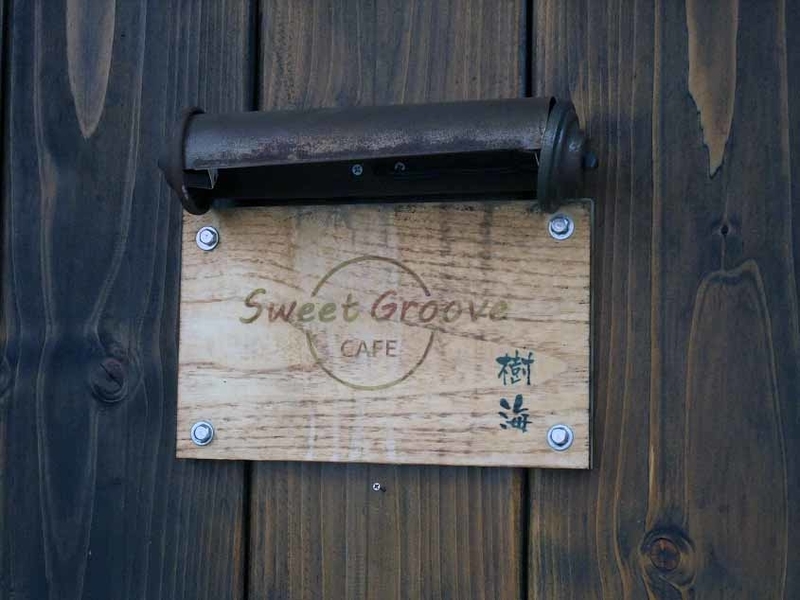 Sweet Groove
CAFE
樹海